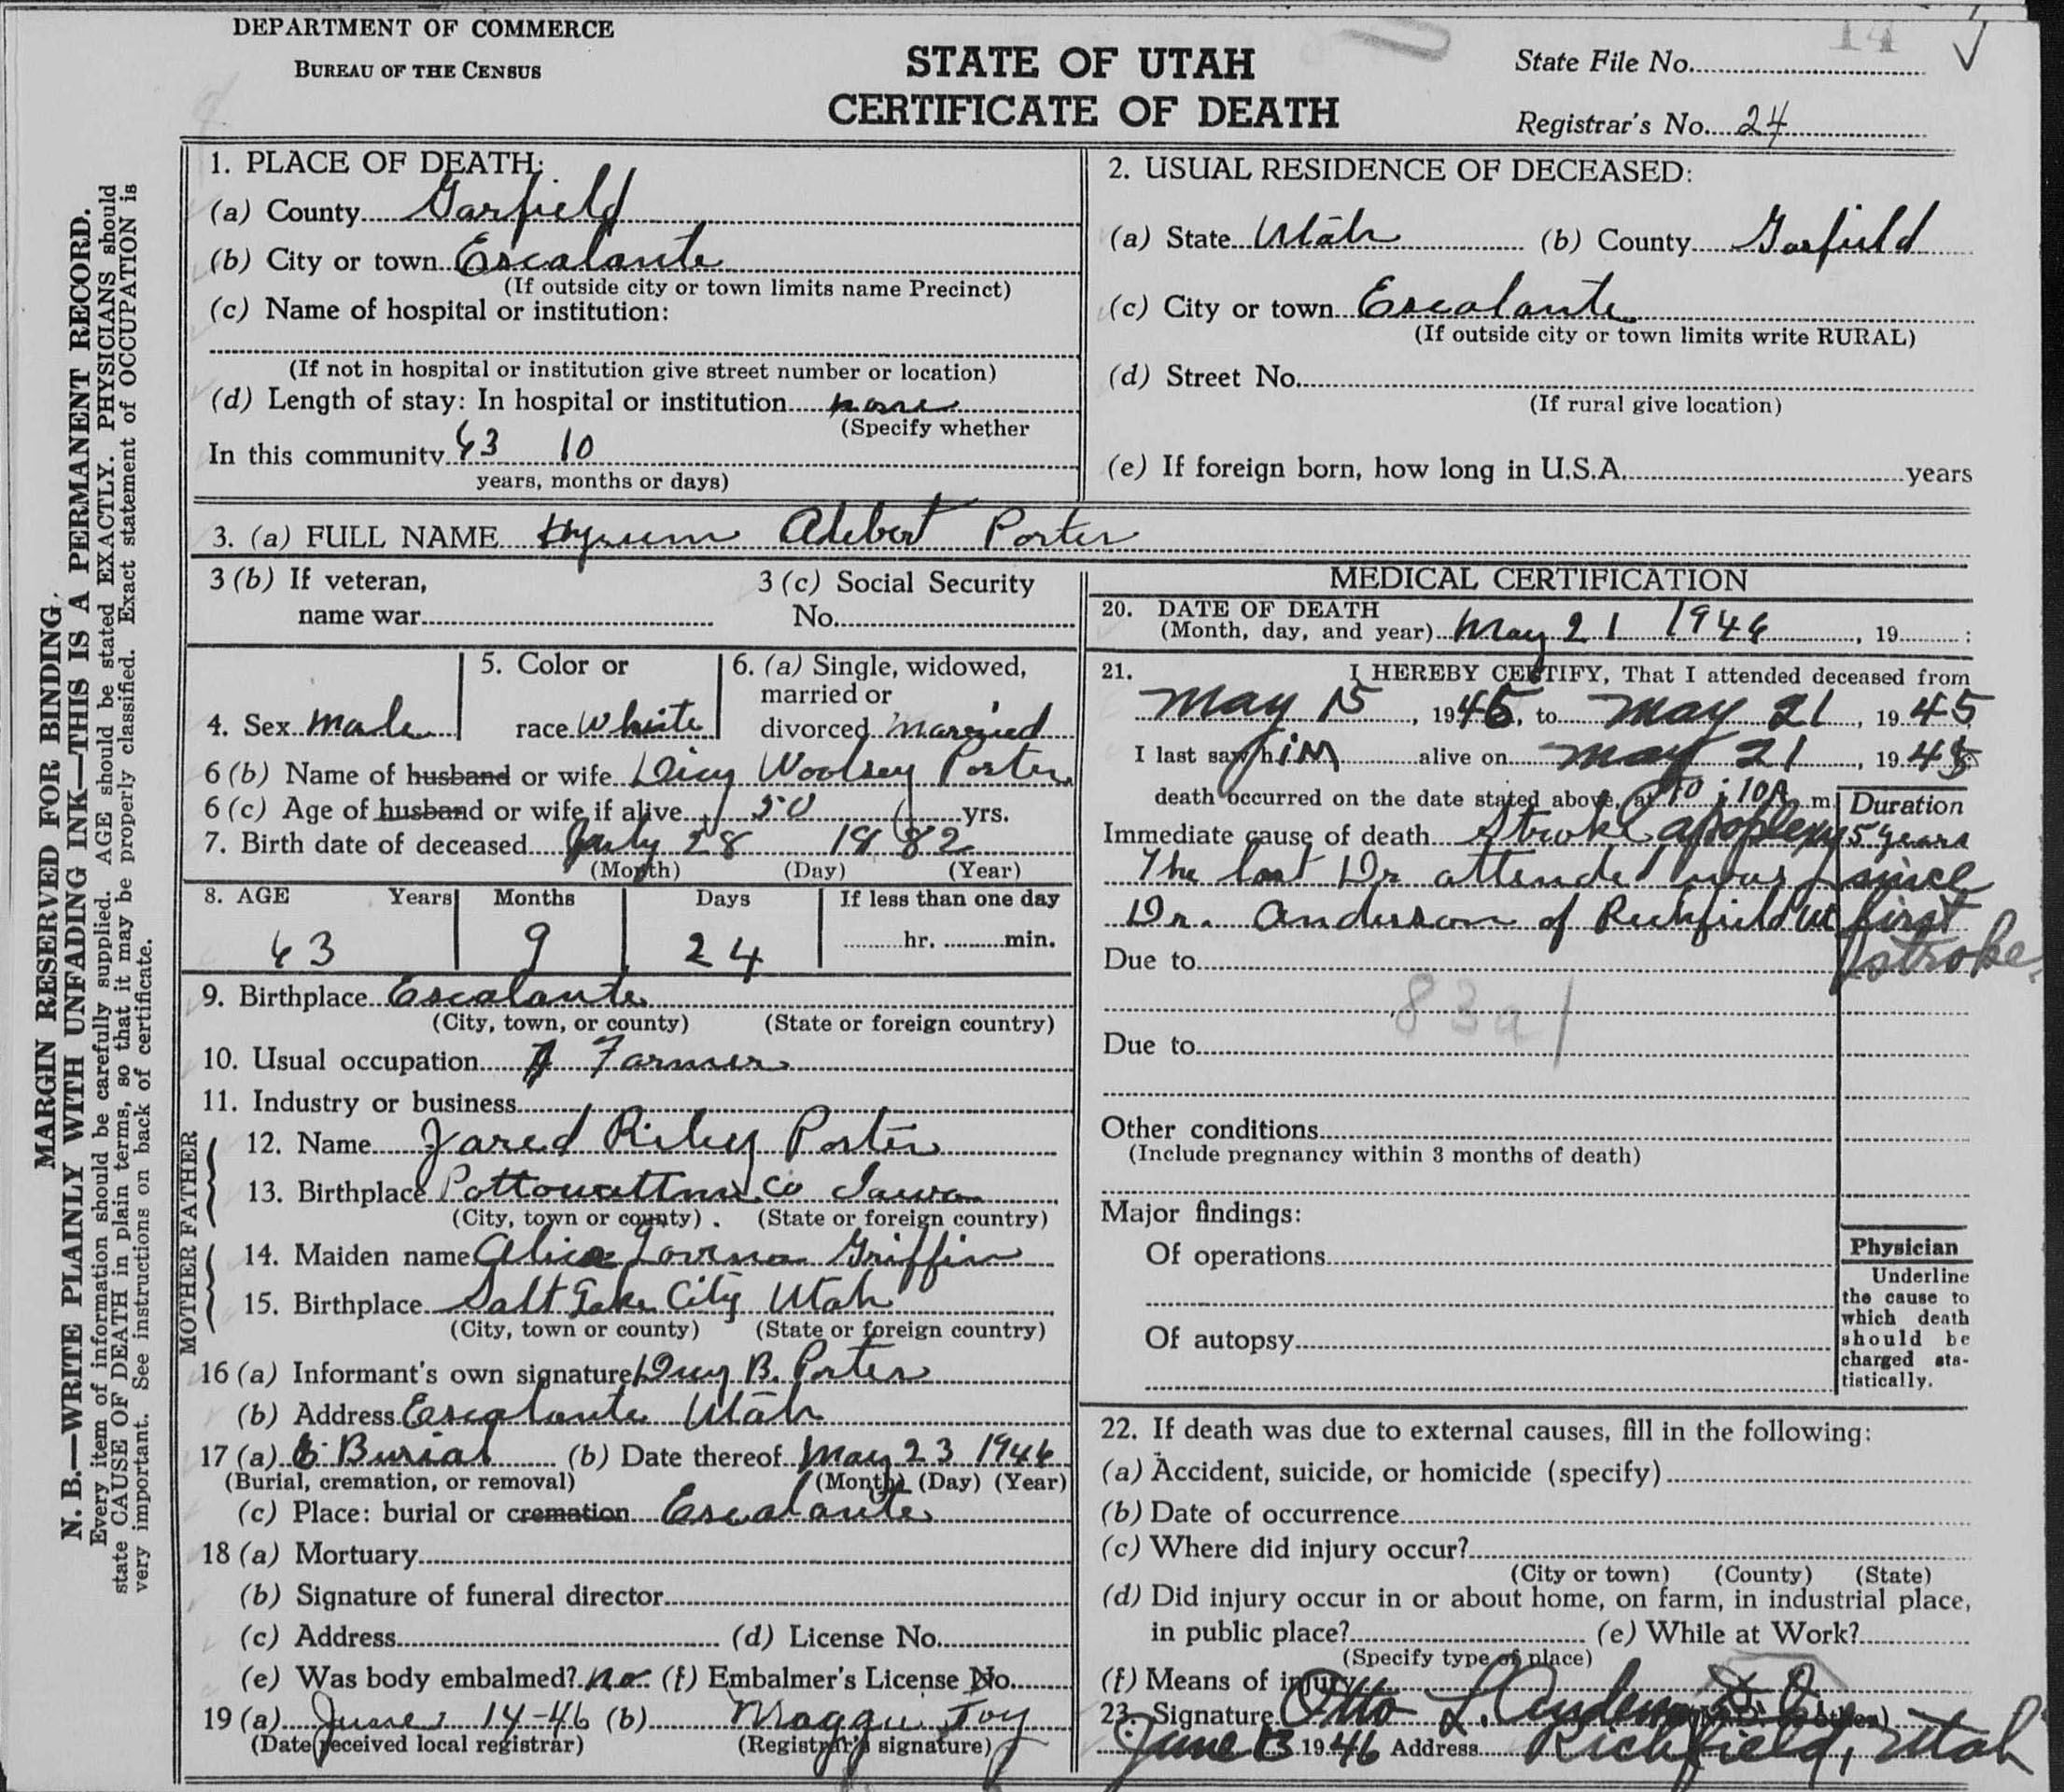 DEPARTMENT OF COMMERCE
BUREAU OF THE CENSUS
STATE OF UTAH
CERTIFICATE OF DEATH
14
State File No.
Registrar's No. 24
MARGIN RESERVED FOR BINDING
N. B.—WRITE PLAINLY WITH UNFADING INK—THIS IS A PERMANENT RECORD.
Every item of information should be carefully supplied. AGE should be stated EXACTLY. PHYSICIANS should
state CAUSE OF DEATH in plain terms, so that it may be properly classified. Exact statement of OCCUPATION is
very important. See instructions on back of certificate.
1. PLACE OF DEATH:
(a) County Garfield
(b) City or town Escalante
(If outside city or town limits name Precinct)
(c) Name of hospital or institution:
(If not in hospital or institution give street number or location)
(d) Length of stay: In hospital or institution none
(Specify whether
In this community 63 10
years, months or days)
2. USUAL RESIDENCE OF DECEASED:
(a) State Utah (b) County Garfield
(c) City or town Escalante
(If outside city or town limits write RURAL)
(d) Street No.
(If rural give location)
(e) If foreign born, how long in U.S.A. years
3. (a) FULL NAME Hyrum Adebert Porter
3 (b) If veteran,
name war
3 (c) Social Security
No.
4. Sex Male
5. Color or
race White
6. (a) Single, widowed,
married or
divorced Married
6 (b) Name of husband or wife Woolsey Porter
6 (c) Age of husband or wife if alive 50 yrs.
7. Birth date of deceased July 28 1882
(Month) (Day) (Year)
8. AGE Years Months Days If less than one day
63 9 24 hr. min.
9. Birthplace Escalante
(City, town, or county) (State or foreign country)
10. Usual occupation Farmer
11. Industry or business
FATHER
12. Name Jared Riley Porter
13. Birthplace Pottowattmi Co Iowa
(City, town or county) (State or foreign country)
MOTHER
14. Maiden name Alice Lovina Griffin
15. Birthplace Salt Lake City Utah
(City, town or county) (State or foreign country)
16 (a) Informant's own signature B. Porter
(b) Address Escalante Utah
17 (a) Burial (b) Date thereof May 23 1946
(Burial, cremation, or removal) (Month) (Day) (Year)
(c) Place: burial or cremation Escalante
18 (a) Mortuary
(b) Signature of funeral director
(c) Address (d) License No.
(e) Was body embalmed? no (f) Embalmer's License No.
19 (a) June 14-46 (b) Maggie Joy
(Date received local registrar) (Registrar's signature)
MEDICAL CERTIFICATION
20. DATE OF DEATH
(Month, day, and year) May 21 1946, 19 :
21. I HEREBY CERTIFY, That I attended deceased from
May 15, 1945, to May 21, 1945
I last saw him alive on May 21, 1945
death occurred on the date stated above, at 10:10 A m.
Duration
Immediate cause of death Stroke apoplexy 5 years
The last Dr attended was since
Dr. Anderson of Richfield Ut first
stroke
Due to
83a
Due to
Other conditions
(Include pregnancy within 3 months of death)
Major findings:
Of operations
Of autopsy
Physician
Underline
the cause to
which death
should be
charged sta-
tistically.
22. If death was due to external causes, fill in the following:
(a) Accident, suicide, or homicide (specify)
(b) Date of occurrence
(c) Where did injury occur?
(City or town) (County) (State)
(d) Did injury occur in or about home, on farm, in industrial place,
in public place? (e) While at Work?
(Specify type of place)
(f) Means of injury
23. Signature Otto L. Anderson
June 13 1946 Address Richfield, Utah